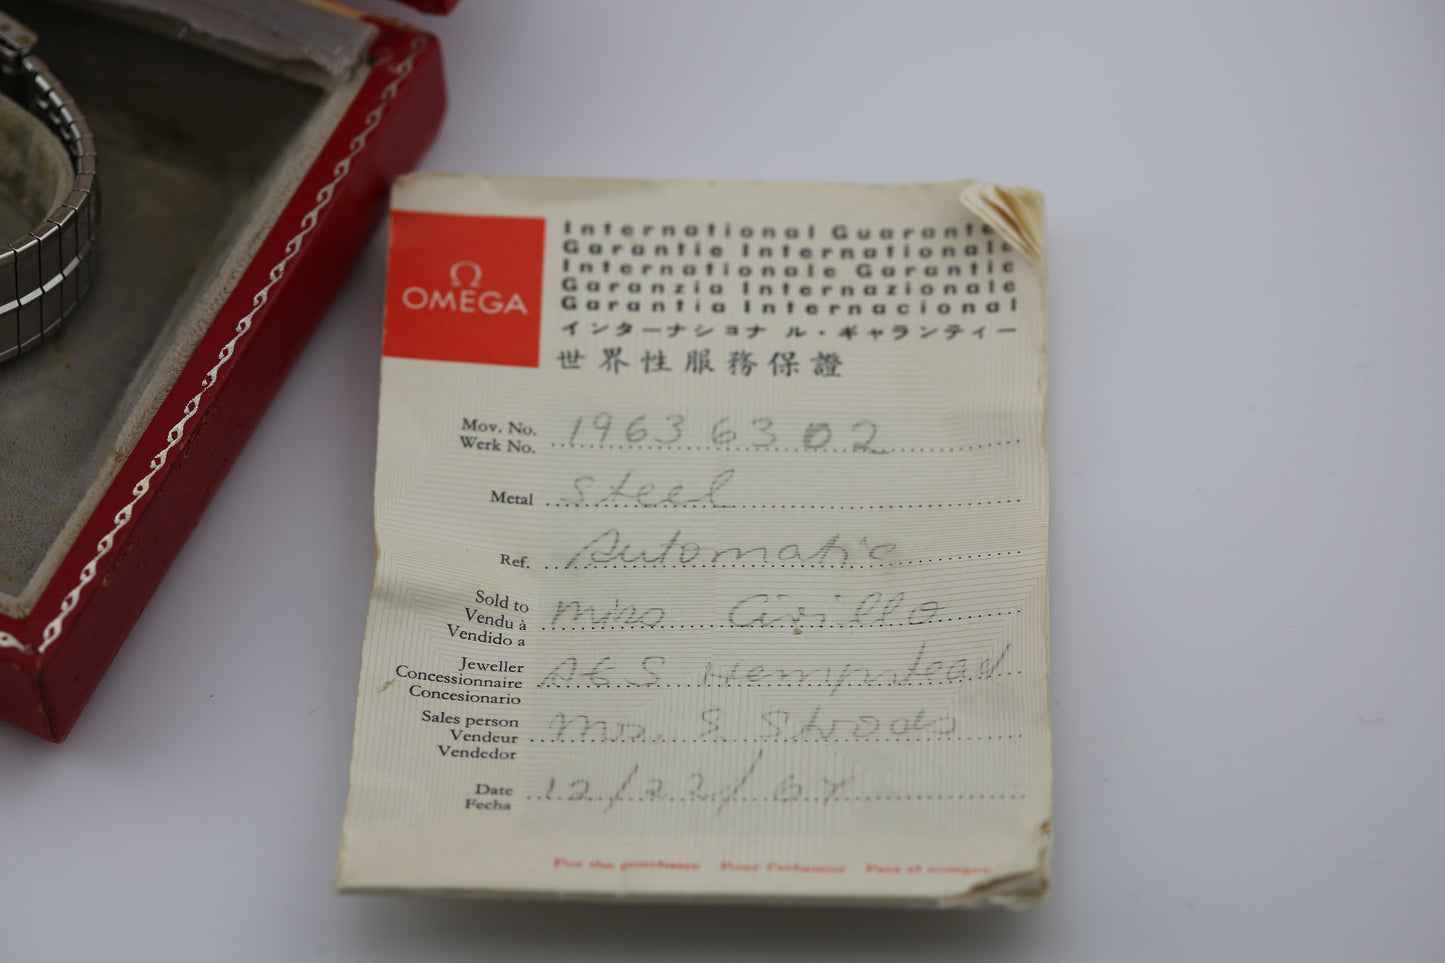 Ω
OMEGA
International Guarantee
Garantie Internationale
Internationale Garantie
Garanzia Internazionale
Garantia Internacional
インターナショナル・ギャランティー
世界性服務保證
Mov. No. 19636302
Werk No.
Metal Steel
Ref. Automatic
Sold to
Vendu à
Vendido a
Jeweller
Concessionnaire A&S Hempstead
Concesionario
Sales person
Vendeur Mrs. S
Vendedor
Date 12/22/67
Fecha
For the purchaser Pour l'acheteur Para el